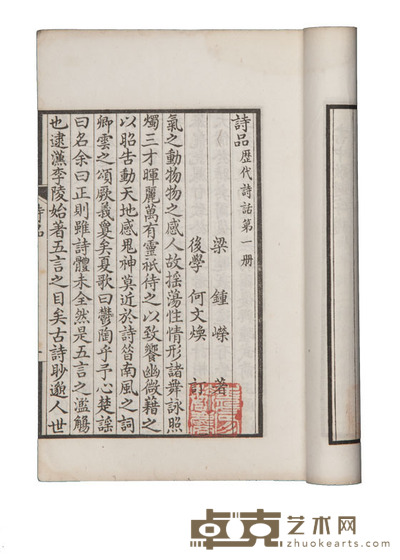 詩品 歷代詩話第一册
梁 鍾嶸 著
後學 何文煥 訂
氣之動物物之感人故搖蕩性情形諸舞詠照
燭三才暉麗萬有靈祇待之以致饗幽微藉之
以昭告動天地感鬼神莫近於詩昔南風之詞
卿雲之頌厥義夐矣夏歌曰鬱陶乎予心楚謠
曰名余曰正則雖詩體未全然是五言之濫觴
也逮漢李陵始著五言之目矣古詩眇邈人世
詩品
卓克艺术网
zhuokearts.com